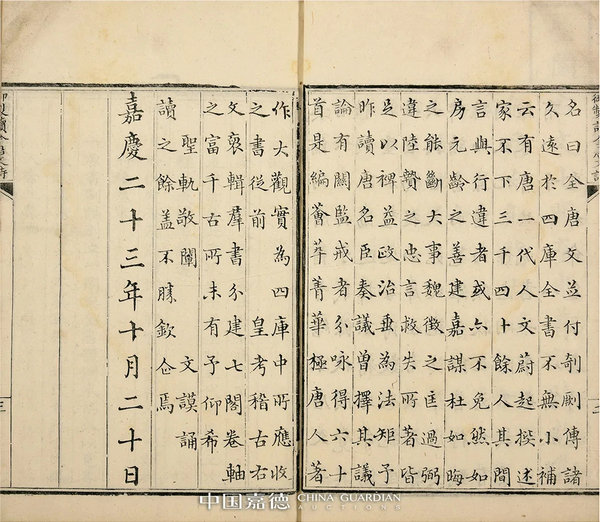 名曰全唐文並付剞劂傳諸
久遠於四庫全書不無小補
云有唐一代人文蔚起撰述
家不下三千四十餘人其間
言與行違者或亦不免然如
房元齡之善建嘉謀杜如晦
之能斷大事魏徵之匡過弼
違陸贄之忠言救失所著皆
足以裨益政治垂為法矩予
昨讀唐名臣奏議曾擇其議
論有關監戒者分咏得六十
首是編薈萃菁華極唐人著
作大觀實為四庫中所應收
之書從前 皇考稽古右
文裒輯羣書分建七閣卷軸
之富千古所未有予仰希
聖軌敬闡 文謨誦
讀之餘蓋不勝欽企焉
嘉慶二十三年十月二十日
中国嘉德 CHINA GUARDIAN
AUCTIONS